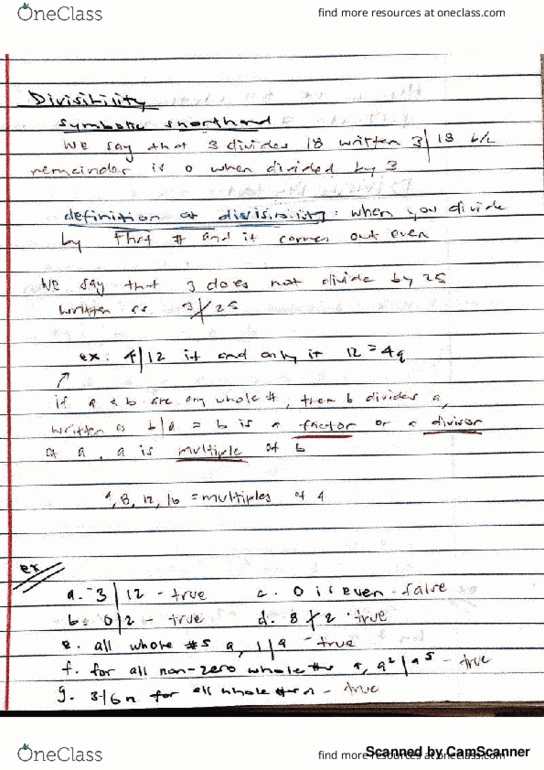 OneClass
find more resources at oneclass.com
Divisibility
symbolic shorthand
We say that 3 divides 18 written 3|18 b/c
remainder is 0 when divided by 3
definition of divisibility: when you divide
by that # and it comes out even
We say that 3 does not divide by 25
written as 3∤25
ex: 4|12 if and only if 12 = 4q
if a & b are any whole #, then b divides a,
written as b|a = b is a factor or a divisor
of a, a is multiple of b
4, 8, 12, 16 = multiples of 4
ex
a. 3|12 - true c. 0 is even - false
b. 0|2 - true d. 8∤2 - true
e. all whole #s a, 1|a - true
f. for all non-zero whole #s a, a²|a⁵ - true
g. 3|6n for all whole #s n - true
OneClass
find more resources at oneclass.com
Scanned by CamScanner